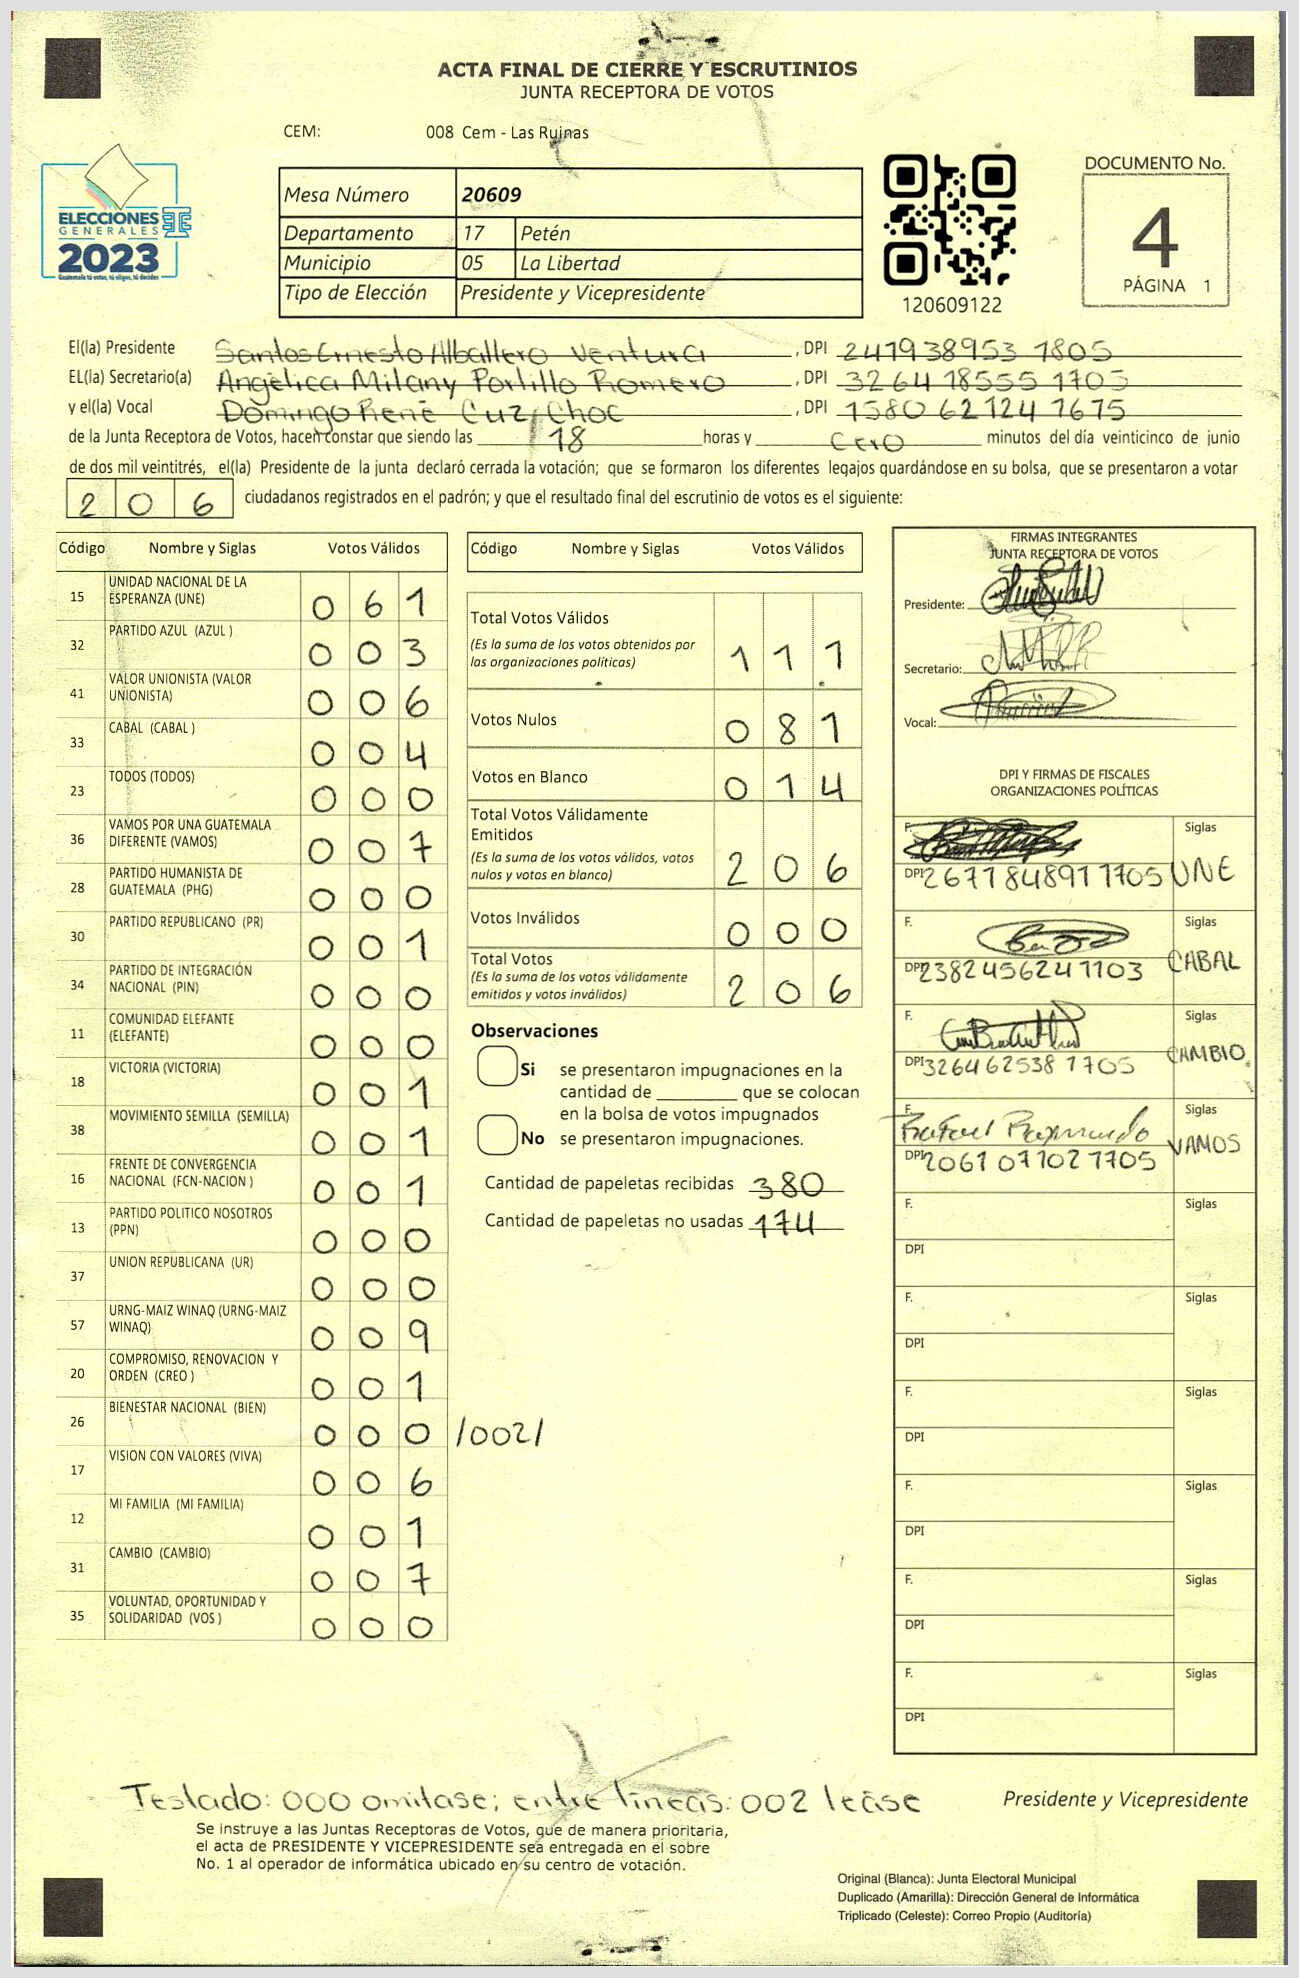 ACTA FINAL DE CIERRE Y ESCRUTINIOS
JUNTA RECEPTORA DE VOTOS
CEM: 008 Cem - Las Ruinas
ELECCIONES
GENERALES
2023
Guatemala tú votas, tú eliges, tú decides
Mesa Número 20609
Departamento 17 Petén
Municipio 05 La Libertad
Tipo de Elección Presidente y Vicepresidente
120609122
DOCUMENTO No.
4
PÁGINA 1
El(la) Presidente Santos Ernesto Alballero Ventura, DPI 241938953 1805
EL(la) Secretario(a) Angèlica Milany Portillo Romero, DPI 3264 18555 1705
y el(la) Vocal Domingo Renè Cuz Choc, DPI 1580 62124 1675
de la Junta Receptora de Votos, hacen constar que siendo las 18 horas y Cero minutos del día veinticinco de junio
de dos mil veintitrés, el(la) Presidente de la junta declaró cerrada la votación; que se formaron los diferentes legajos guardándose en su bolsa, que se presentaron a votar
2 0 6 ciudadanos registrados en el padrón; y que el resultado final del escrutinio de votos es el siguiente:
Código Nombre y Siglas Votos Válidos
15 UNIDAD NACIONAL DE LA ESPERANZA (UNE) 0 6 1
32 PARTIDO AZUL (AZUL ) 0 0 3
41 VALOR UNIONISTA (VALOR UNIONISTA) 0 0 6
33 CABAL (CABAL ) 0 0 4
23 TODOS (TODOS) 0 0 0
36 VAMOS POR UNA GUATEMALA DIFERENTE (VAMOS) 0 0 7
28 PARTIDO HUMANISTA DE GUATEMALA (PHG) 0 0 0
30 PARTIDO REPUBLICANO (PR) 0 0 1
34 PARTIDO DE INTEGRACIÓN NACIONAL (PIN) 0 0 0
11 COMUNIDAD ELEFANTE (ELEFANTE) 0 0 0
18 VICTORIA (VICTORIA) 0 0 1
38 MOVIMIENTO SEMILLA (SEMILLA) 0 0 1
16 FRENTE DE CONVERGENCIA NACIONAL (FCN-NACION ) 0 0 1
13 PARTIDO POLITICO NOSOTROS (PPN) 0 0 0
37 UNION REPUBLICANA (UR) 0 0 0
57 URNG-MAIZ WINAQ (URNG-MAIZ WINAQ) 0 0 9
20 COMPROMISO, RENOVACION Y ORDEN (CREO ) 0 0 1
26 BIENESTAR NACIONAL (BIEN) 0 0 0 /002/
17 VISION CON VALORES (VIVA) 0 0 6
12 MI FAMILIA (MI FAMILIA) 0 0 1
31 CAMBIO (CAMBIO) 0 0 7
35 VOLUNTAD, OPORTUNIDAD Y SOLIDARIDAD (VOS ) 0 0 0
Código Nombre y Siglas Votos Válidos
Total Votos Válidos 1 1 1
(Es la suma de los votos obtenidos por
las organizaciones políticas)
Votos Nulos 0 8 1
Votos en Blanco 0 1 4
Total Votos Válidamente
Emitidos 2 0 6
(Es la suma de los votos válidos, votos
nulos y votos en blanco)
Votos Inválidos 0 0 0
Total Votos 2 0 6
(Es la suma de los votos válidamente
emitidos y votos inválidos)
Observaciones
Si se presentaron impugnaciones en la
cantidad de ________ que se colocan
en la bolsa de votos impugnados
No se presentaron impugnaciones.
Cantidad de papeletas recibidas 380
Cantidad de papeletas no usadas 174
FIRMAS INTEGRANTES
JUNTA RECEPTORA DE VOTOS
Presidente:
Secretario:
Vocal:
DPI Y FIRMAS DE FISCALES
ORGANIZACIONES POLÍTICAS
F. Siglas
DPI 2671848911705 UNE
F. Siglas
DPI 2382456241103 CABAL
F. Siglas
DPI 326462538 1705 CAMBIO
F. Rafael Raymundo Siglas
DPI 2061 071021705 VAMOS
F. Siglas
DPI
F. Siglas
DPI
F. Siglas
DPI
F. Siglas
DPI
F. Siglas
DPI
F. Siglas
DPI
Testado: 000 omitase; entre líneas: 002 leáse
Presidente y Vicepresidente
Se instruye a las Juntas Receptoras de Votos, que de manera prioritaria,
el acta de PRESIDENTE Y VICEPRESIDENTE sea entregada en el sobre
No. 1 al operador de informática ubicado en su centro de votación.
Original (Blanca): Junta Electoral Municipal
Duplicado (Amarilla): Dirección General de Informática
Triplicado (Celeste): Correo Propio (Auditoría)